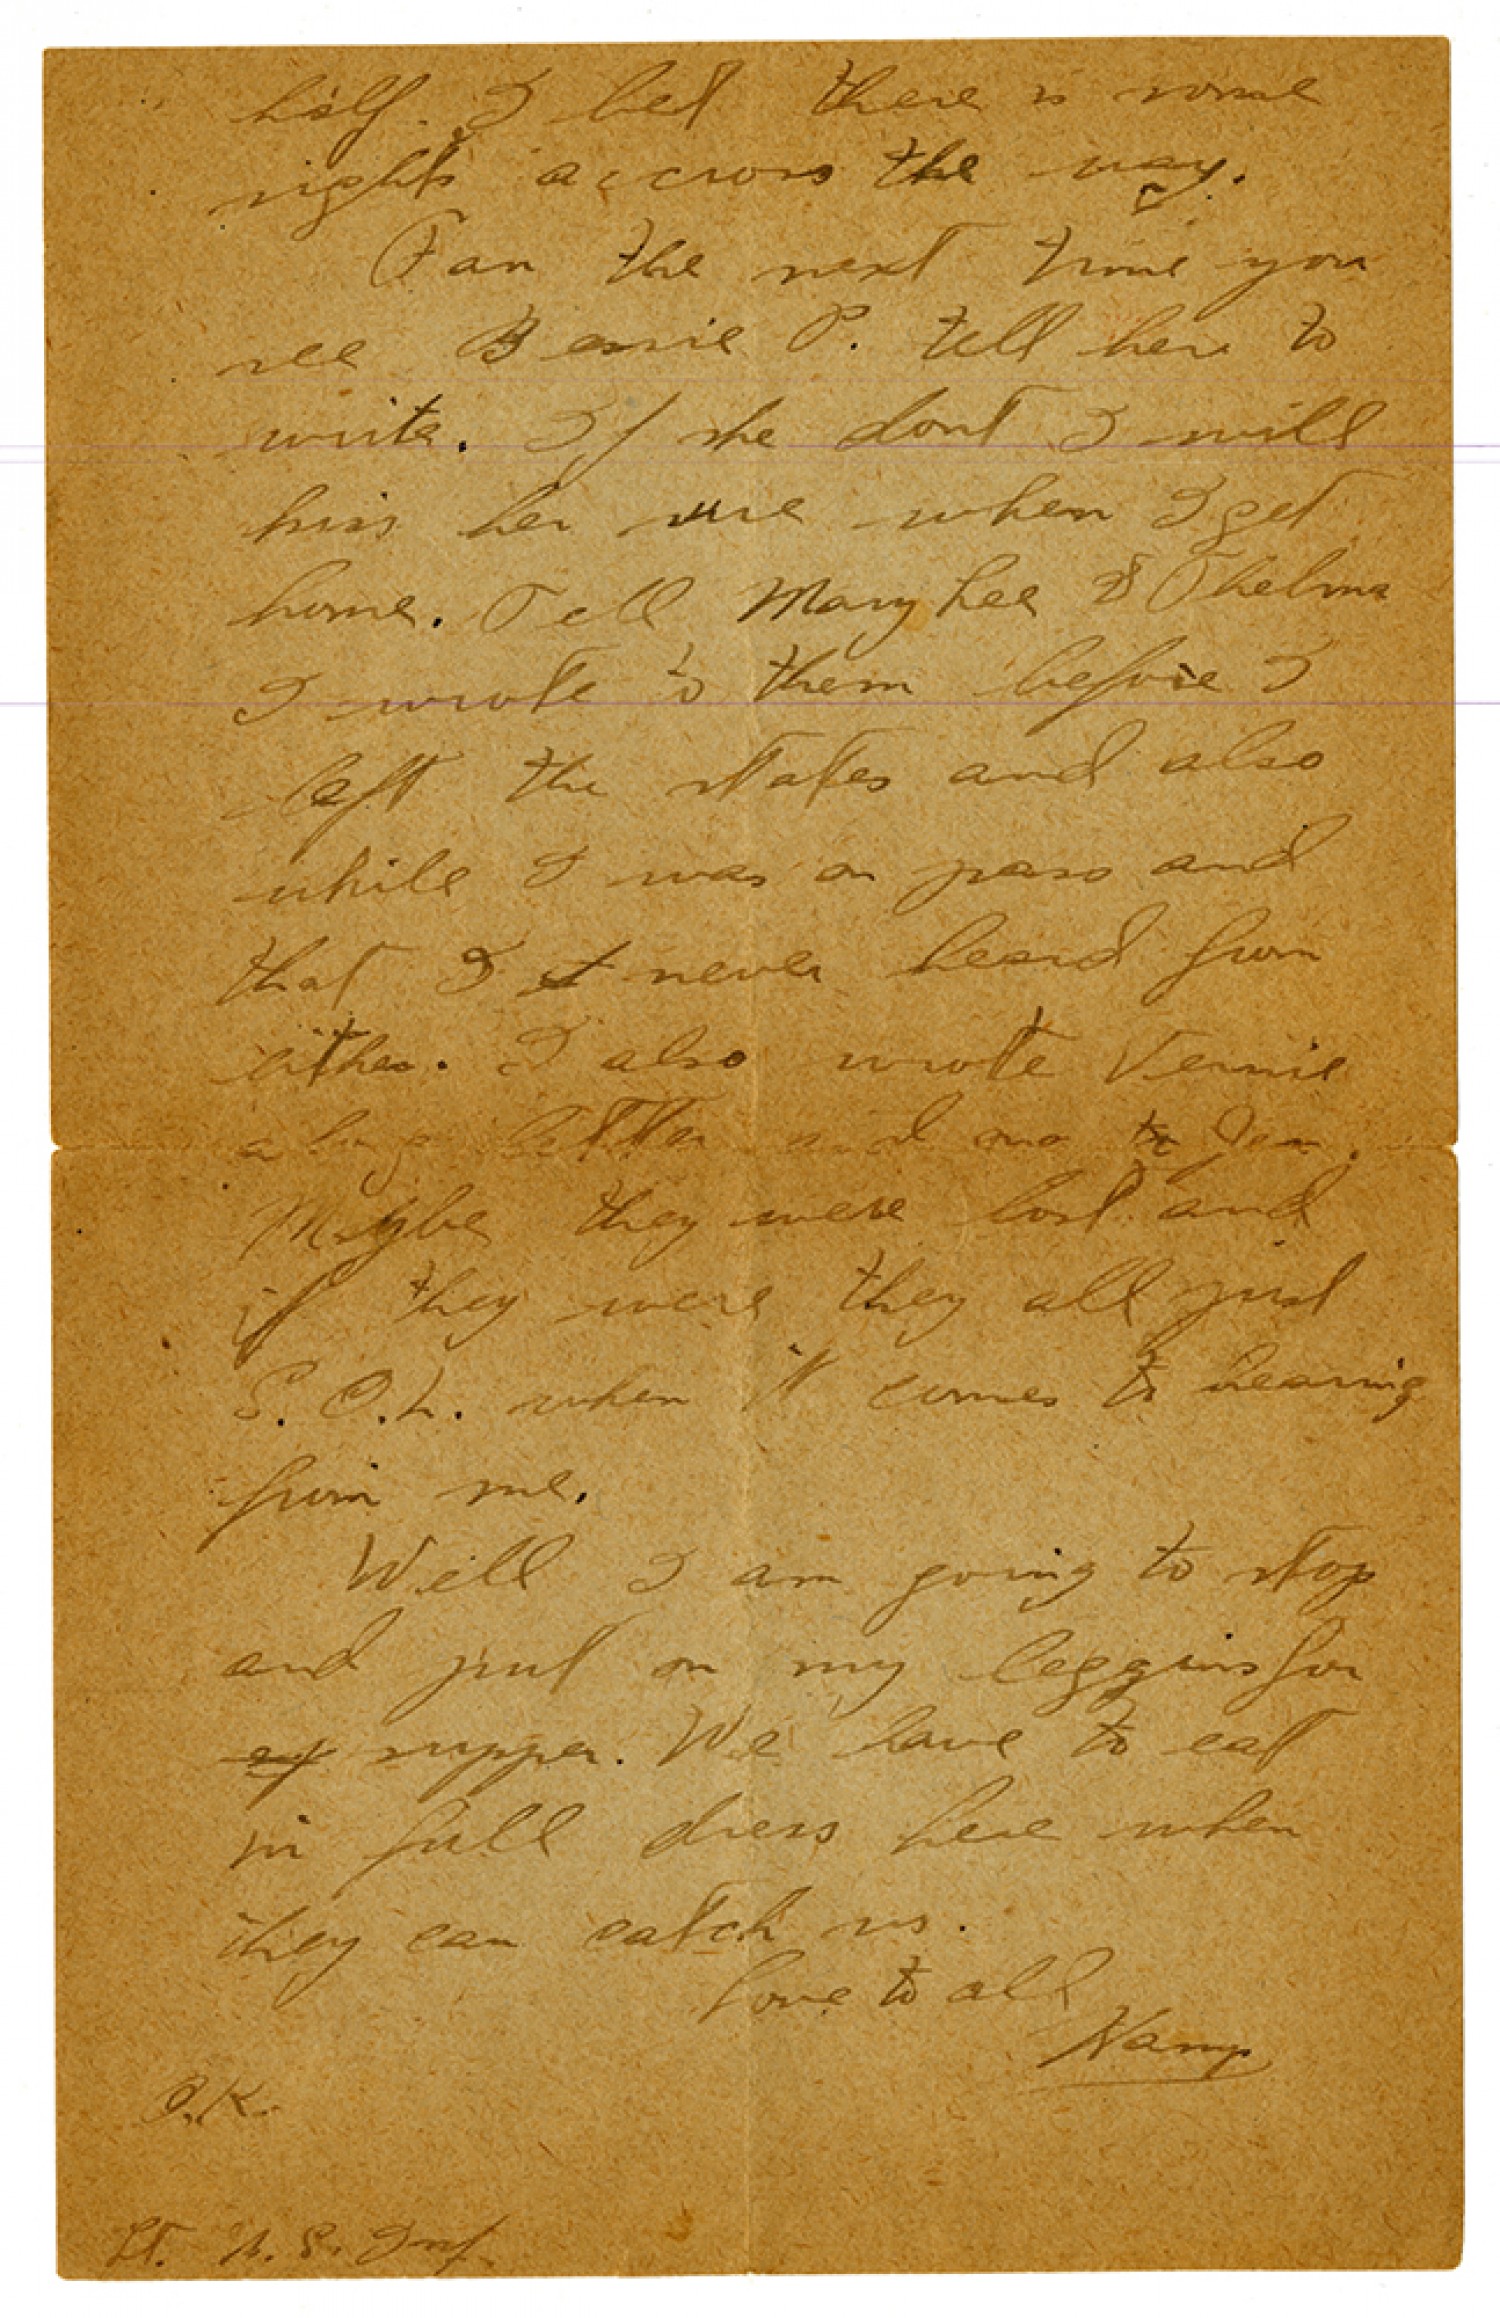 half. I bet there is some
nights accross the way.
Fan the next time you
see Bessie P. tell her to
write. If she dont I will
kiss her sure when I get
home. Tell Mary Lee & Thelma
I wrote to them before I
left the states and also
while I was on pass and
that I never heard from
either. I also wrote Vernie
a long letter and one to
Maybe they were lost and
if they were they all just
S.O.L. when it comes to hearing
from me.
Well I am going to stop
and put on my leggins for
supper. We have to eat
in full dress here when
they can catch us.
Love to all
Kamp
O.K.
Lt. U.S. Inf.